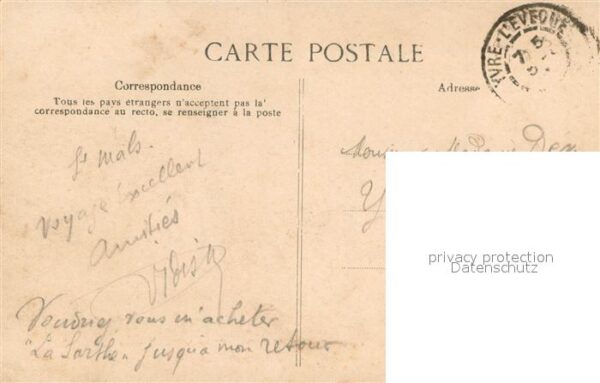 CARTE POSTALE
YVRE-L'EVEQUE
7 5
Correspondance
Adresse
Tous les pays étrangers n'acceptent pas la
correspondance au recto, se renseigner à la poste
St Malo.
Voyage excellent
Amitiés
Voudriez vous m'acheter
"La Sarthe" jusqu'a mon retour
privacy protection
Datenschutz